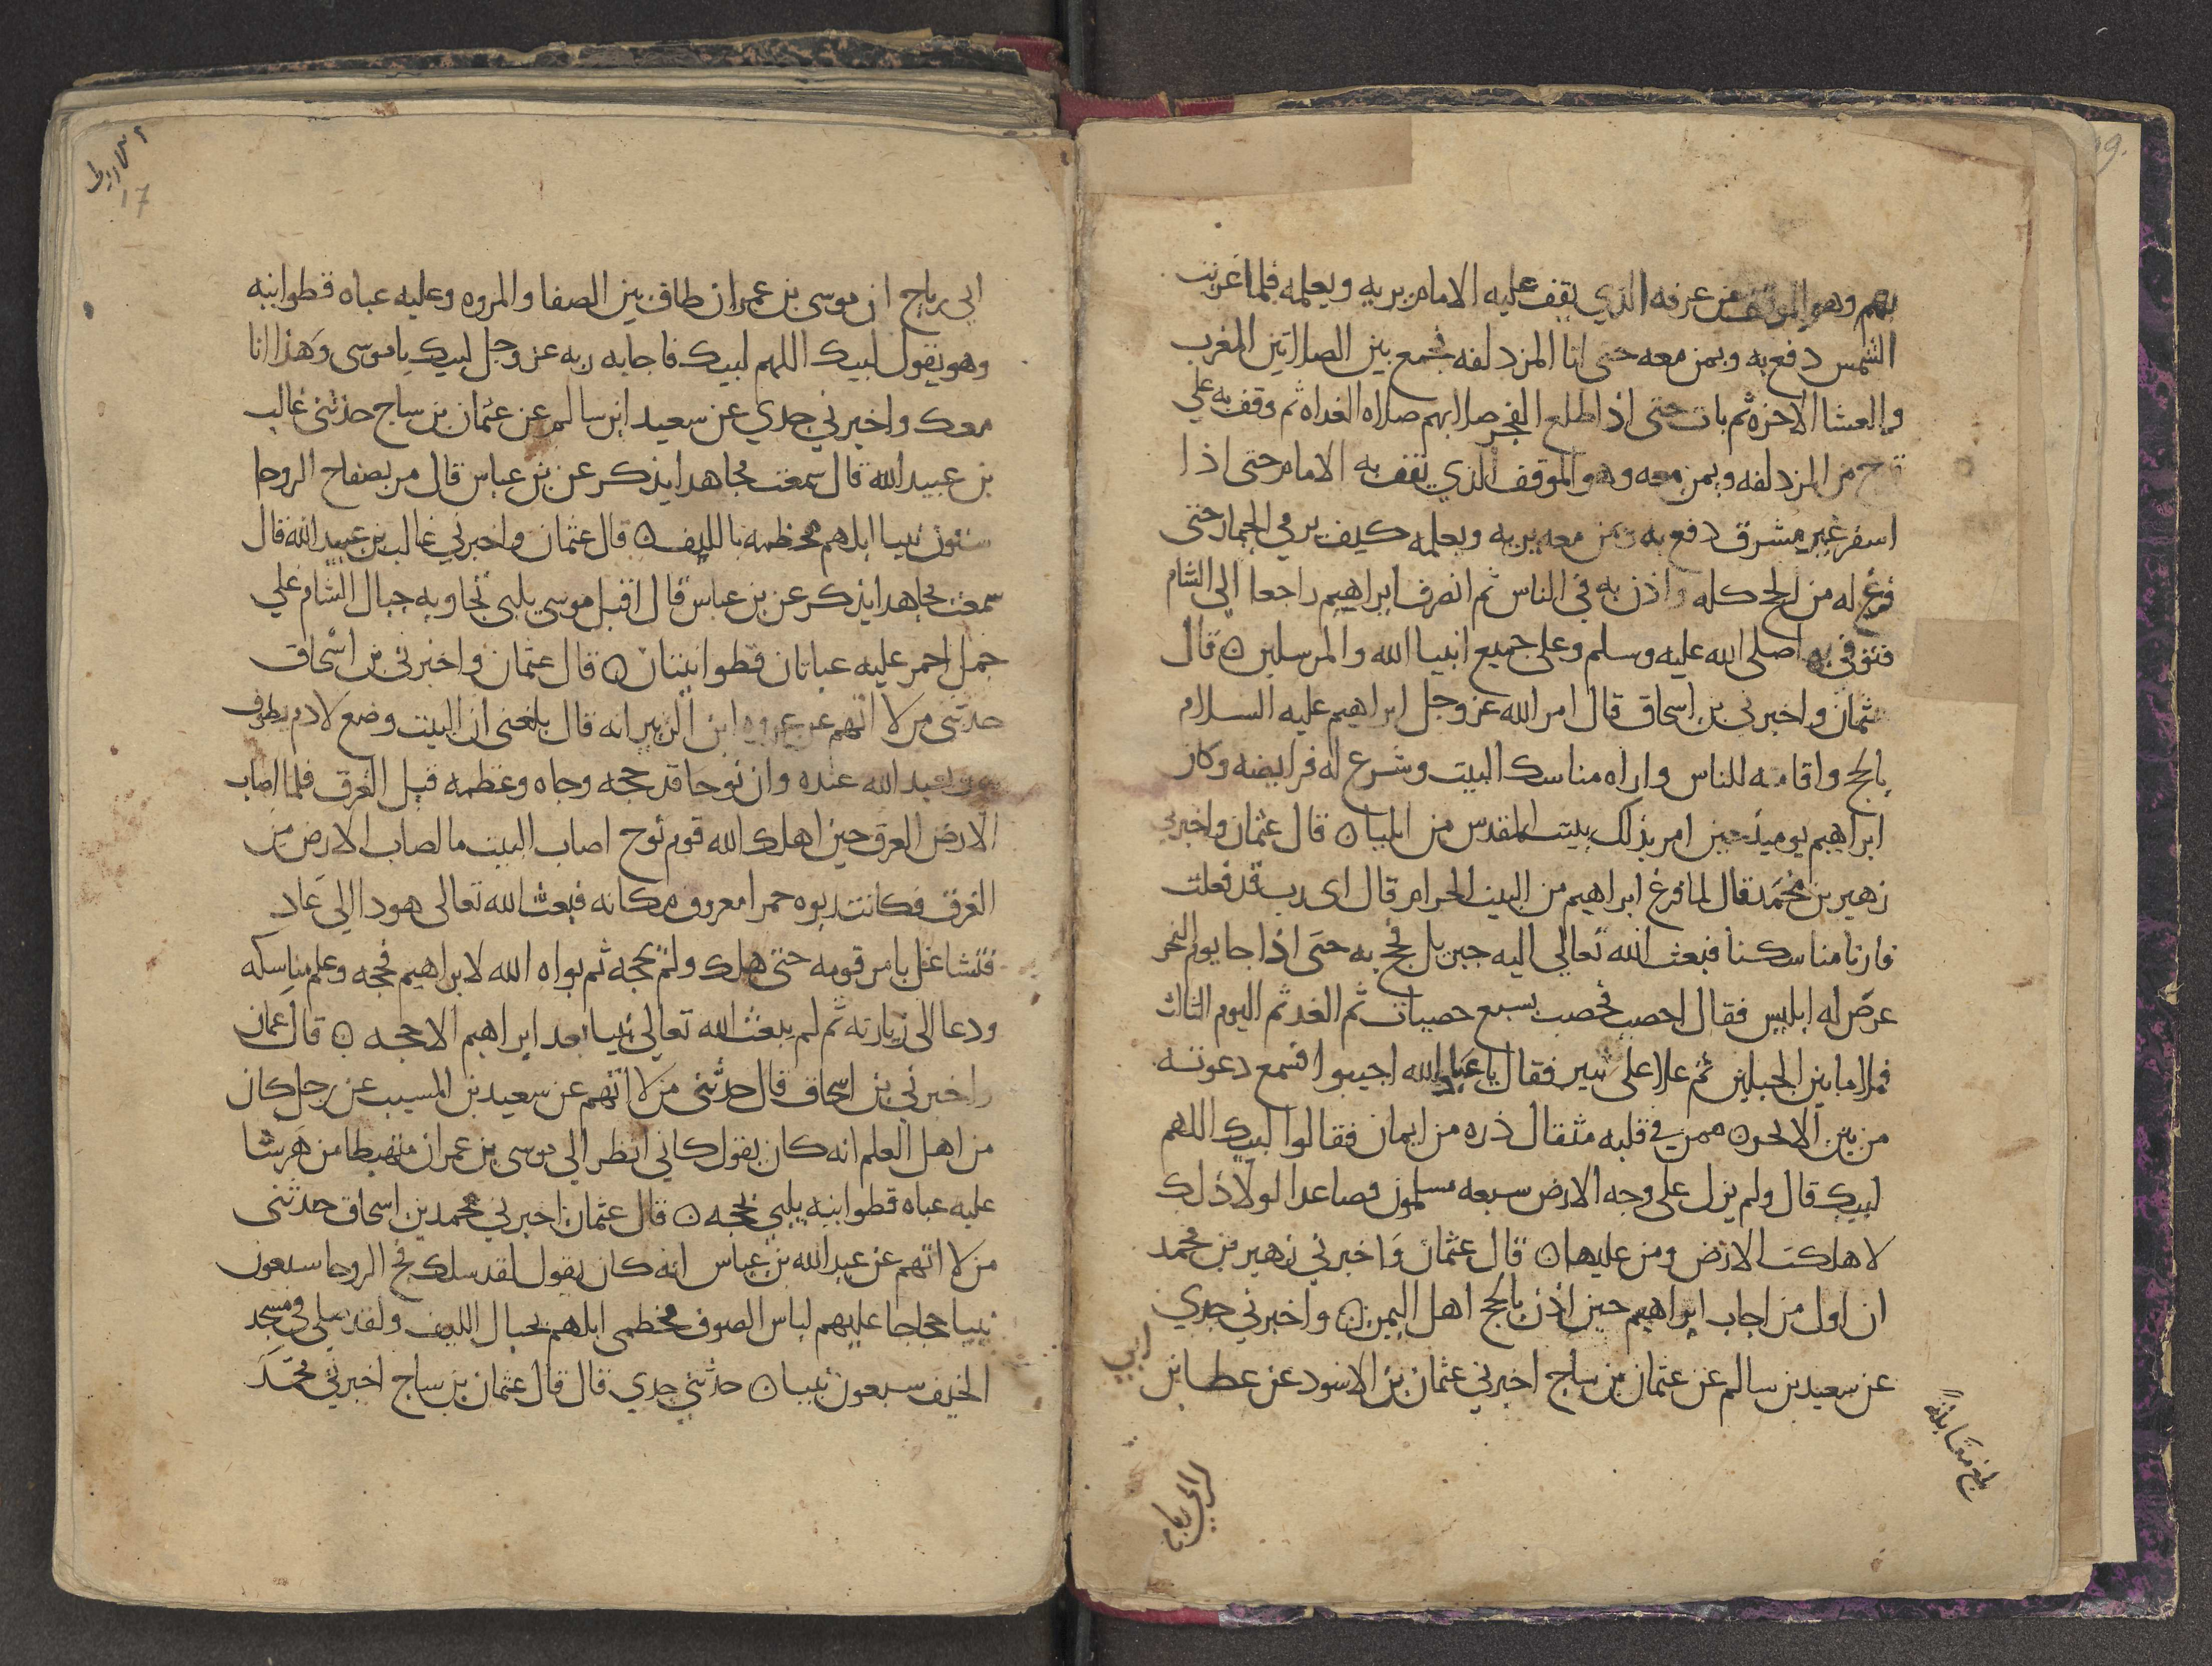 بهم وهو الموقف من عرفه الذي يقف عليه الامام يريه ويعلمه فلما غربت
الشمس دفع به وبمن معه حتى اتا المزدلفه فجمع بين الصلاتين المغرب
والعشا الاخره ثم بات حتى اذا طلع الفجر صلا بهم صلاه الغداه ثم وقف به علي
قزح من المزدلفه وبمن معه وهو الموقف الذي يقف به الامام حتى اذا
اسفر غير مشرق دفع به وبمن معه يريه ويعلمه كيف يرمي الجمار حتى
فرغ له من الحج كله واذن به في الناس ثم انصرف ابراهيم راجعا الى الشام
فتوفي بها صلى الله عليه وسلم وعلى جميع انبيا الله والمرسلين ۝ قال
عثمان واخبرني بن اسحاق قال امر الله عز وجل ابراهيم عليه السلام
بالحج واقامه للناس واراه مناسك البيت وشرع له فرايضه وكان
ابراهيم يوميذ حين امر بذلك ببيت المقدس من ايليا ۝ قال عثمان واخبرني
زهير بن محمد قال لما فرغ ابراهيم من البيت الحرام قال اى رب قد فعلت
فارنا مناسكنا فبعث الله تعالى اليه جبريل فحج به حتى اذا جا يوم النحر
عرض له ابليس فقال احصب فحصب بسبع حصيات ثم الغد ثم اليوم الثالث
فملا ما بين الجبلين ثم علا على ثبير فقال يا عباد الله اجيبوا فسمع دعوته
من بين الابحر ممن في قلبه مثقال ذره من ايمان فقالوا لبيك اللهم
لبيك قال ولم يزل على وجه الارض سبعه مسلمون فصاعدا لولا ذلك
لاهلكت الارض ومن عليها ۝ قال عثمان واخبرني زهير بن محمد
ان اول من اجاب ابراهيم حين اذن بالحج اهل اليمن ۝ واخبرني جدي
عن سعيد بن سالم عن عثمان بن ساج اخبرني عثمان بن الاسود عن عطا بن
ابي
بلغ مقابلة
ابي رباح
17
ابي رباح ان موسى بن عمران طاف بين الصفا والمروه وعليه عباه قطوانيه
وهو يقول لبيك اللهم لبيك فاجابه ربه عز وجل لبيك يا موسى وهذا انا
معك واخبرني جدي عن سعيد ابن سالم عن عثمان بن ساج حدثني غالب
بن عبيد الله قال سمعت مجاهدا يذكر عن بن عباس قال مر بصفاح الروحا
ستون نبيا ابلهم مخطمه بالليف ۝ قال عثمان واخبرني غالب بن عبيد الله قال
سمعت مجاهدا يذكر عن بن عباس قال اقبل موسى يلبي تجاوبه جبال الشام علي
جمل احمر عليه عباتان قطوانيتان ۝ قال عثمان واخبرني بن اسحاق
حدثني من لا اتهم عن عروه ابن الزبير انه قال بلغني ان البيت وضع لادم يطوف
به ويعبد الله عنده وان نوحا قد حجه وجاه وعظمه قبل الغرق فلما اصاب
الارض الغرق حين اهلك الله قوم نوح اصاب البيت ما اصاب الارض من
الغرق فكانت ربوه حمرا معروف مكانه فبعث الله تعالى هودا الى عاد
فتشاغل بامر قومه حتى هلك ولم يحجه ثم بواه الله لابراهيم فحجه وعلم مناسكه
ودعا الى زيارته ثم لم يبعث الله تعالى نبيا بعد ابراهيم الا حجه ۝ قال عثمان
واخبرني بن اسحاق قال حدثني من لا اتهم عن سعيد بن المسيب عن رجل كان
من اهل العلم انه كان يقول كاني انظر الي موسى بن عمران منهبطا من هرشا
عليه عباه قطوانيه يلبي بحجه ۝ قال عثمان اخبرني محمد بن اسحاق حدثني
من لا اتهم عن عبد الله بن عباس انه كان يقول لقد سلك فج الروحا سبعون
نبيا حجاجا عليهم لباس الصوف مخطمى ابلهم بحبال الليف ولقد صلى في مسجد
الخيف سبعون نبيا ۝ حدثني جدي قال قال عثمان بن ساج اخبرني محمد